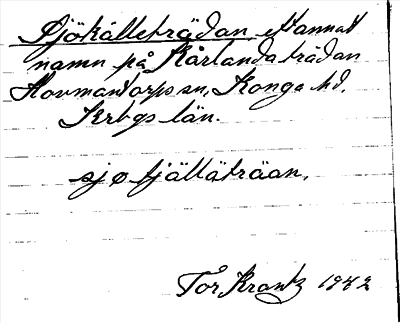 Sjökälleträdan ett annat
namn på Kårlanda trädan
Hovmantorps sn, Konga hd.
Krbgs län.
sjøfjällätråan.
Tor Krantz 1942